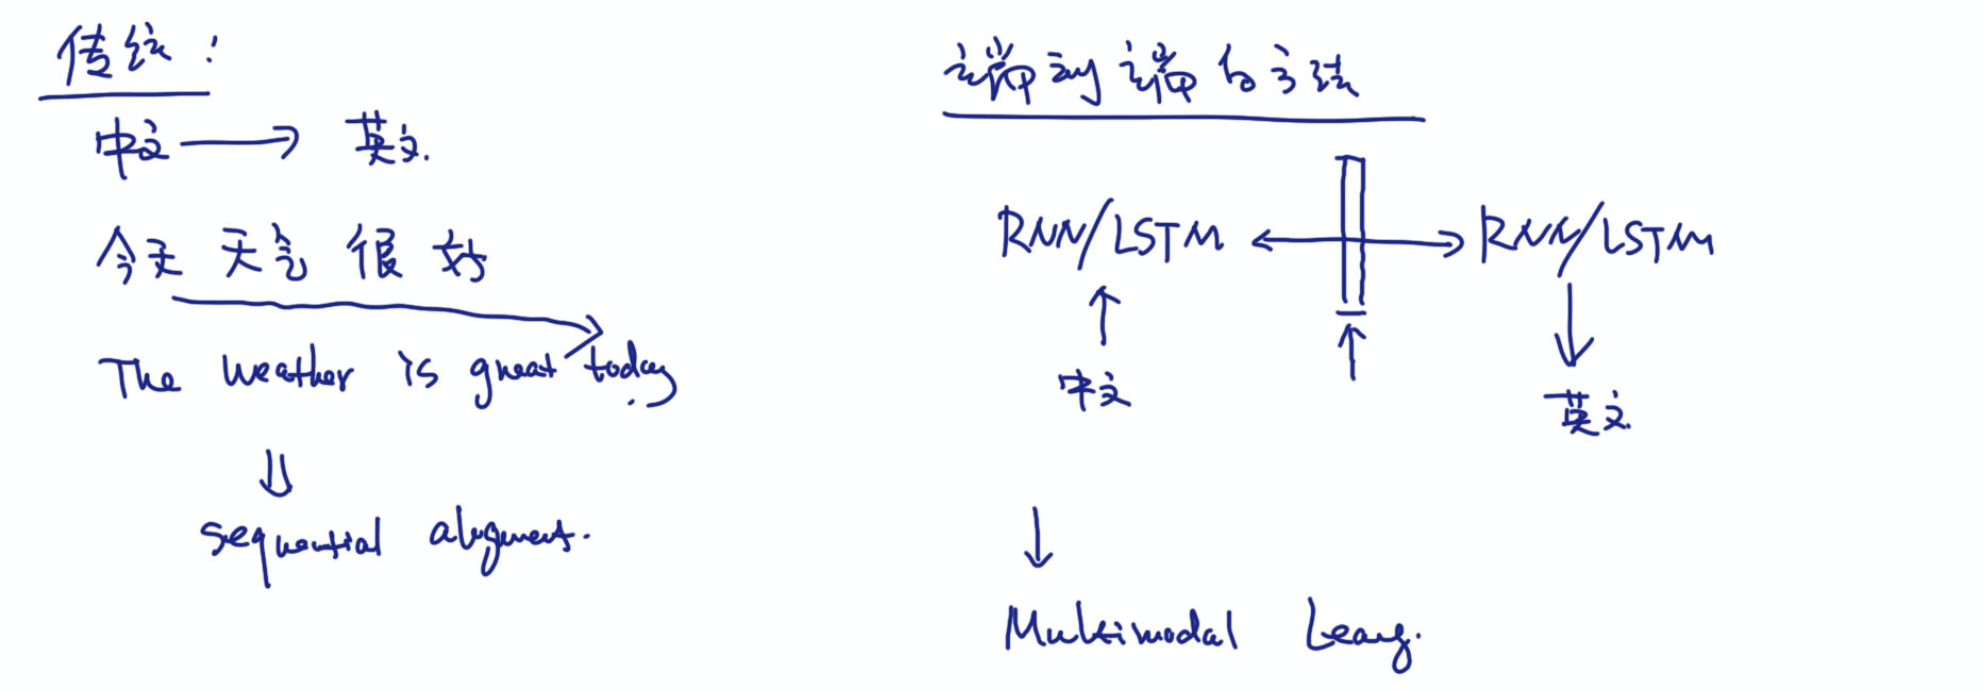 传统：
中文 → 英文.
今天 天气 很 好
The weather is great today.
⇓
sequential alignment.
端到端的方法
RNN/LSTM ↔ RNN/LSTM
↑ ↑ ↓
中文 英文.
↓
Multimodal Learng.